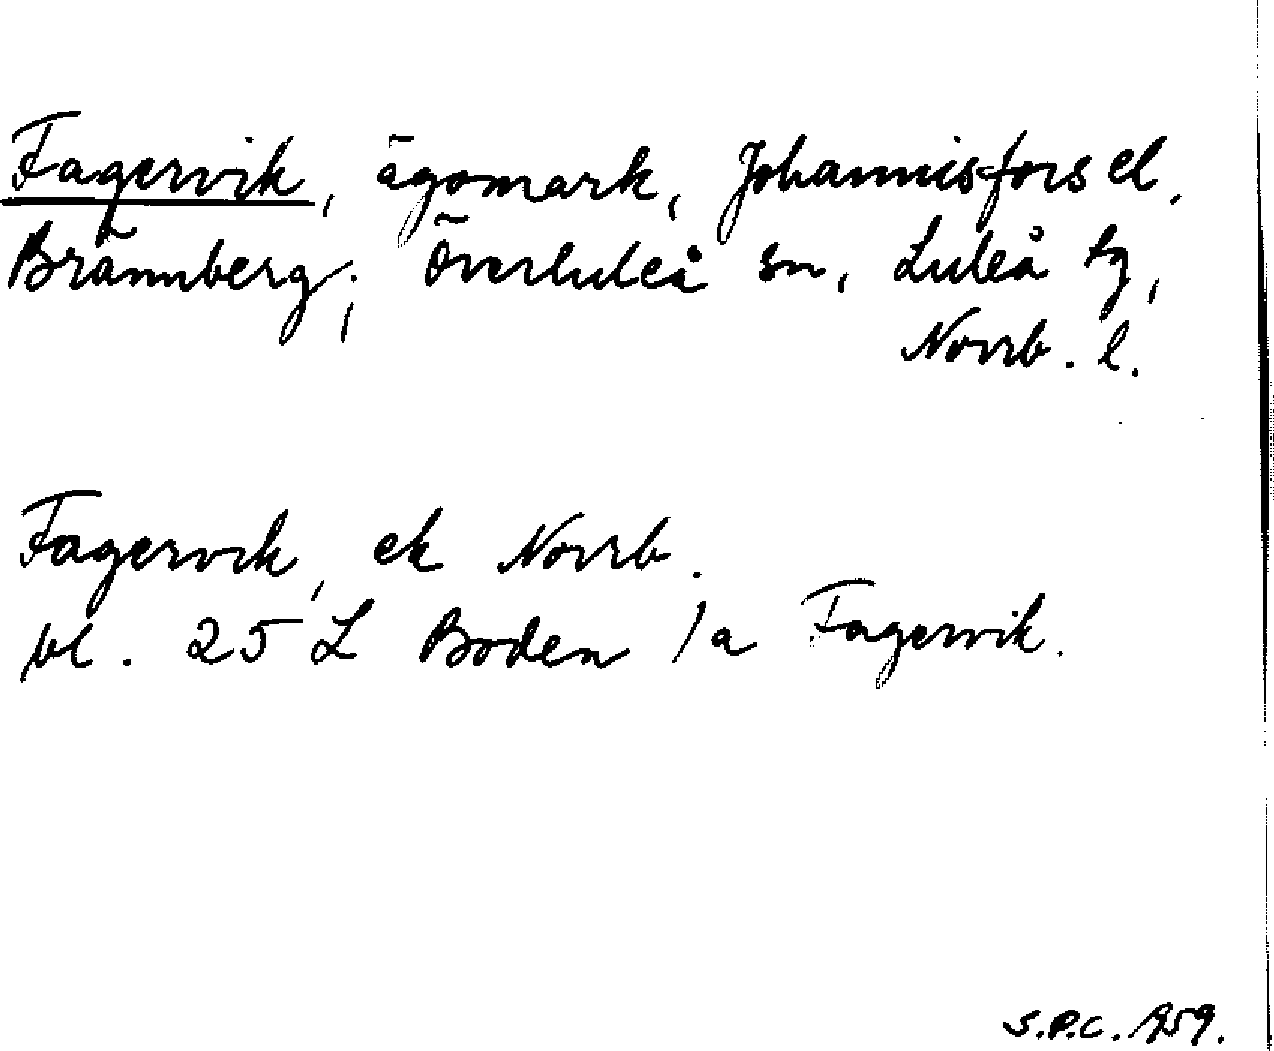 Fagervik, ägomark, Johannisfors el.
Brännberg; Överluleå sn, Luleå tg,
Norrb. l.
Fagervik, ek Norrb.
bl. 25 L Boden / a Fagervik.
S.P.C. 1959.